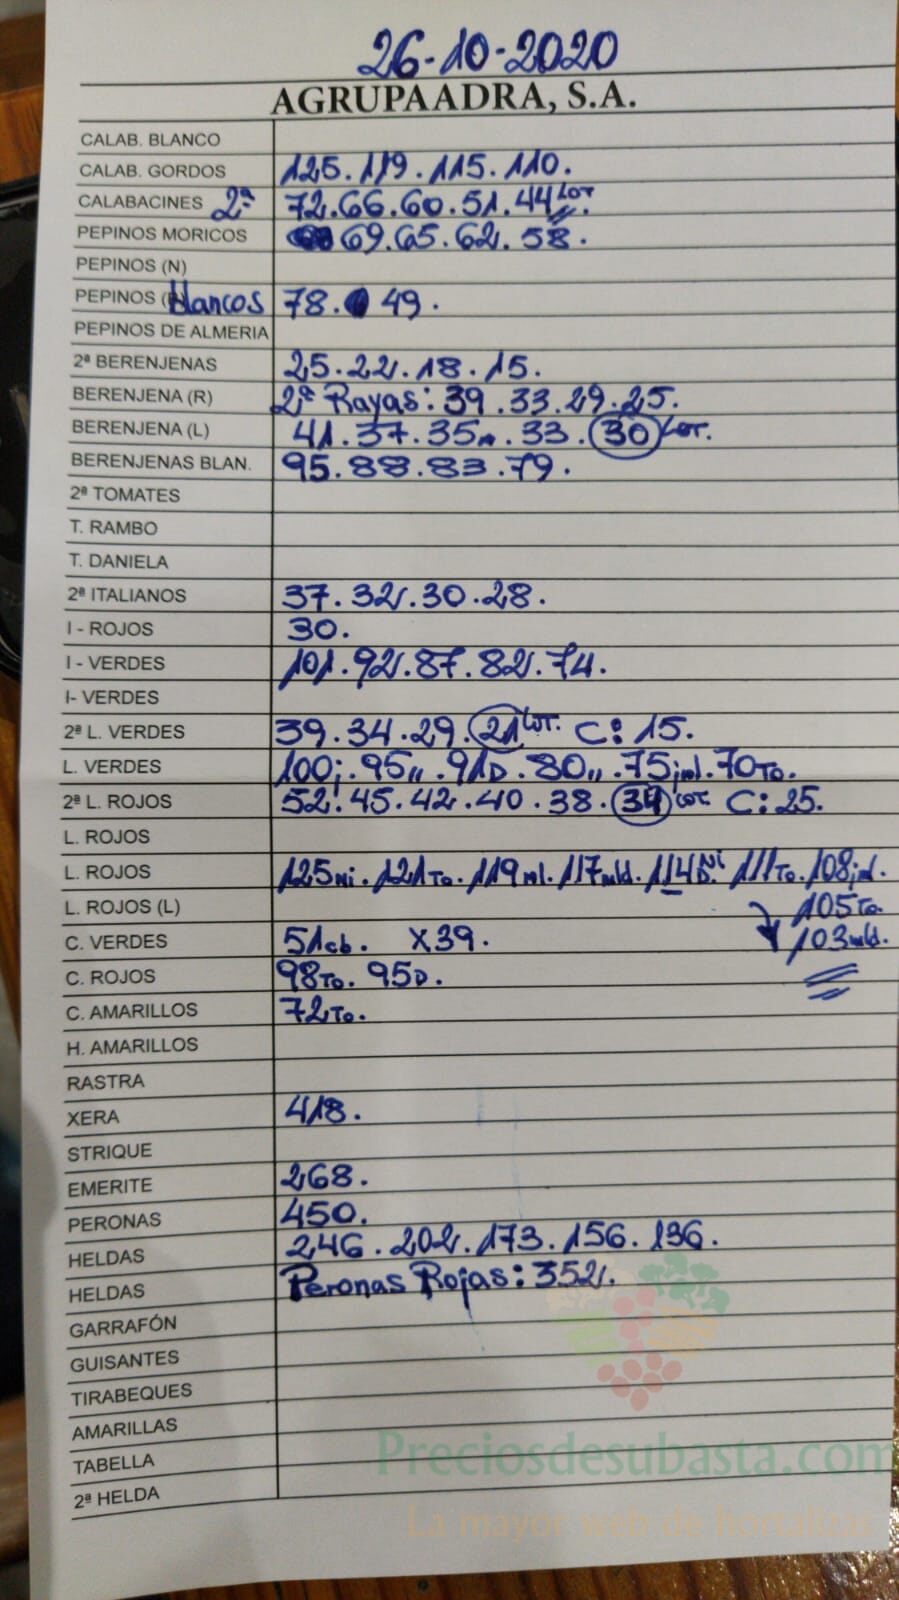 26-10-2020
AGRUPAADRA, S.A.
CALAB. BLANCO
CALAB. GORDOS 125.119.115.110.
CALABACINES 2ª 72.66.60.51.44 LOT.
PEPINOS MORICOS 69.65.62.58.
PEPINOS (N)
PEPINOS blancos 78. 49.
PEPINOS DE ALMERIA
2ª BERENJENAS 25.22.18.15.
BERENJENA (R) 2ª Rayas: 39.33.29.25.
BERENJENA (L) 41.37.35n.33.30 LOT.
BERENJENAS BLAN. 95.88.83.79.
2ª TOMATES
T. RAMBO
T. DANIELA
2ª ITALIANOS 37.32.30.28.
I - ROJOS 30.
I - VERDES 101.92.87.82.74.
I- VERDES
2ª L. VERDES 39.34.29.21 LOT. C: 15.
L. VERDES 100j.95,,.91D.80,,.75jml.70To.
2ª L. ROJOS 52.45.42.40.38.34 LOT. C: 25.
L. ROJOS
L. ROJOS 125Ni.121To.119ml.117mld.114D.Ni 111To.108jml.
L. ROJOS (L) 105To.
C. VERDES 51cb. X39. 103mld.
C. ROJOS 98To. 95D.
C. AMARILLOS 72To.
H. AMARILLOS
RASTRA
XERA 418.
STRIQUE
EMERITE 268.
PERONAS 450.
HELDAS 246.202.173.156.136.
HELDAS Peronas Rojas: 352.
GARRAFÓN
GUISANTES
TIRABEQUES
AMARILLAS
TABELLA
2ª HELDA
Preciosdesubasta.com
La mayor web de hortalizas